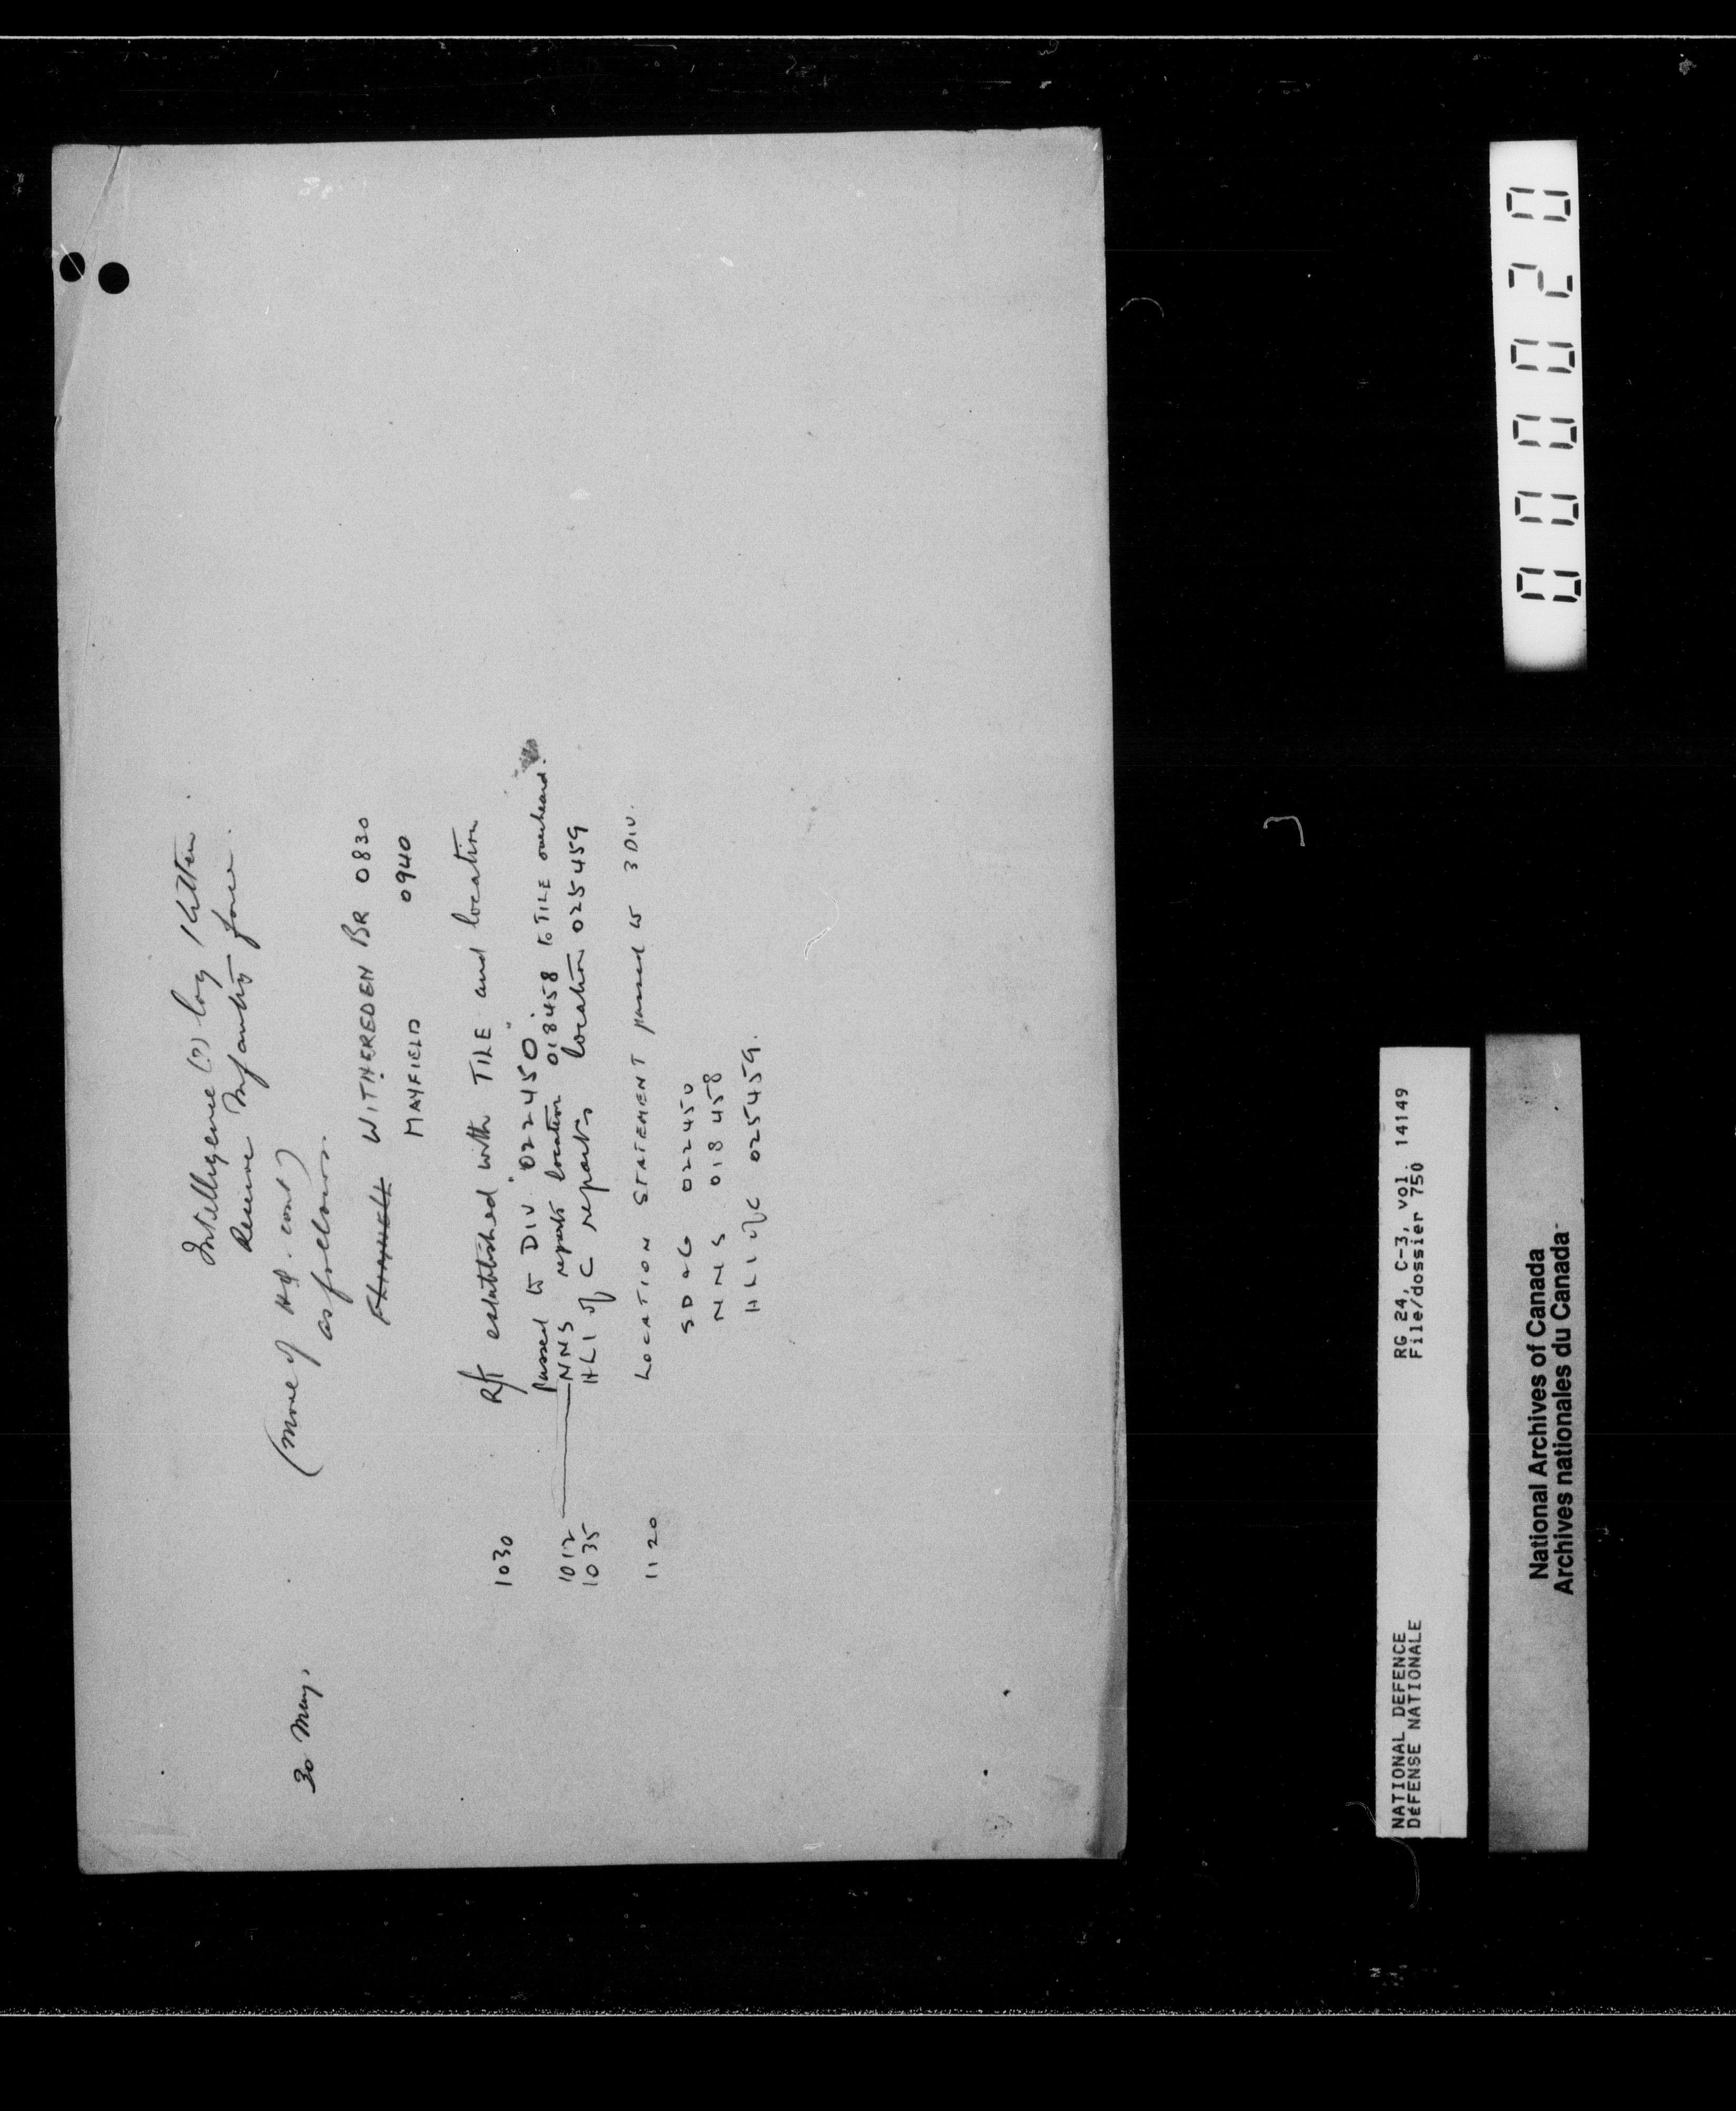 Intelligence (?) log / kitten
Reserve Infantry force.
30 May.
(Move of HQ. cont)
as follows
WITHEREDEN BR 0830
MAYFIELD 0940
1030 R/T established with TILE and location
passed to DIV. "022450".
1012 NNS reports location 018458 to TILE overheard.
1035 HLI of C reports location 025459
1120 LOCATION STATEMENT passed to 3 DIV.
SD&G 022450
NNS 018458
HLI of C 025459.
000020
NATIONAL DEFENCE RG 24, C-3, vol. 14149
DéFENSE NATIONALE File/dossier 750
National Archives of Canada
Archives nationales du Canada